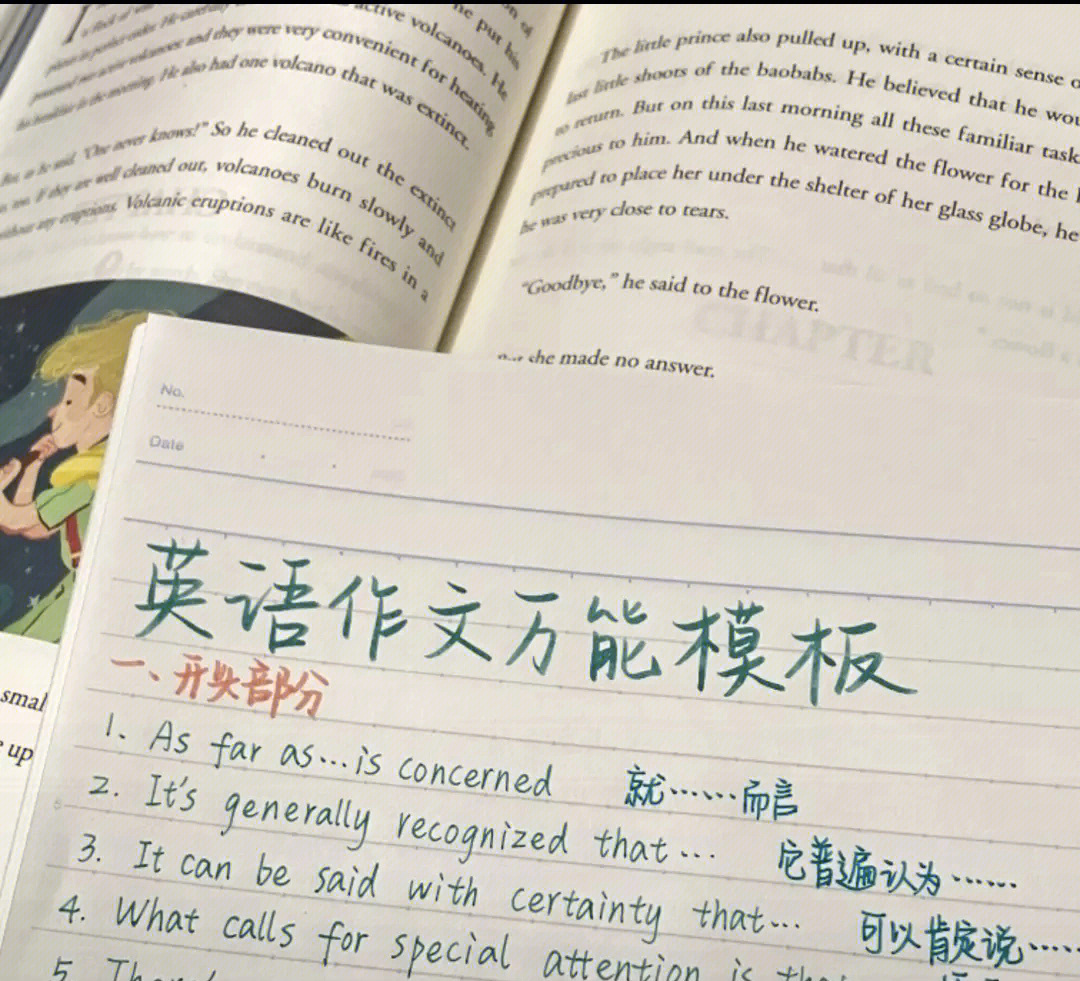 active volcanoes. He
and they were very convenient for heating
He also had one volcano that was extinct.
"One never knows!" So he cleaned out the extinct
If they are well cleaned out, volcanoes burn slowly and
without any eruptions. Volcanic eruptions are like fires in a
The little prince also pulled up, with a certain sense
last little shoots of the baobabs. He believed that he
to return. But on this last morning all these familiar
precious to him. And when he watered the flower for the
prepared to place her under the shelter of her glass globe, he
he was very close to tears.
"Goodbye," he said to the flower.
she made no answer.
CHAPTER
small
up
No.
Date
英语作文万能模板
一、开头部分
1. As far as...is concerned 就……而言
2. It's generally recognized that... 它普遍认为……
3. It can be said with certainty that... 可以肯定说……
4. What calls for special attention is
5.